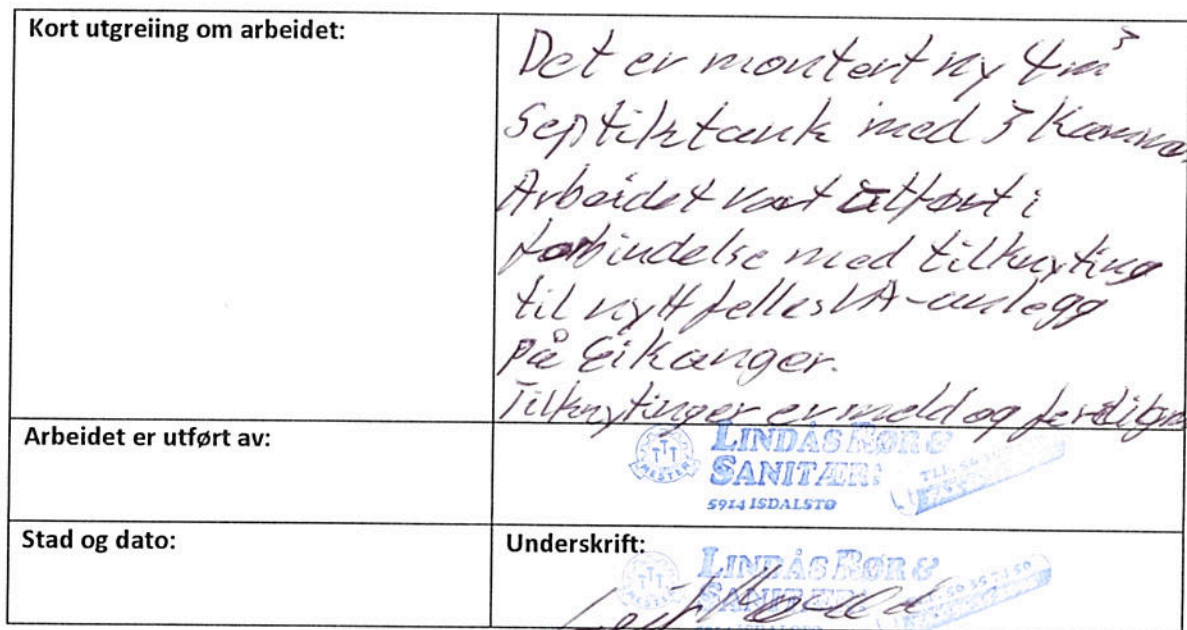 Kort utgreiing om arbeidet:
Det er montert ny 4m³
Septiktank med 3 Kammer
Arbeidet vart utført i
forbindelse med tilknyting
til nytt felles VA-anlegg
på Eikanger.
Tilknytinger er meld og
Arbeidet er utført av:
LINDÅS RØR &
SANITÆR
MESTER
5914 ISDALSTØ
Stad og dato:
Underskrift:
LINDÅS RØR &